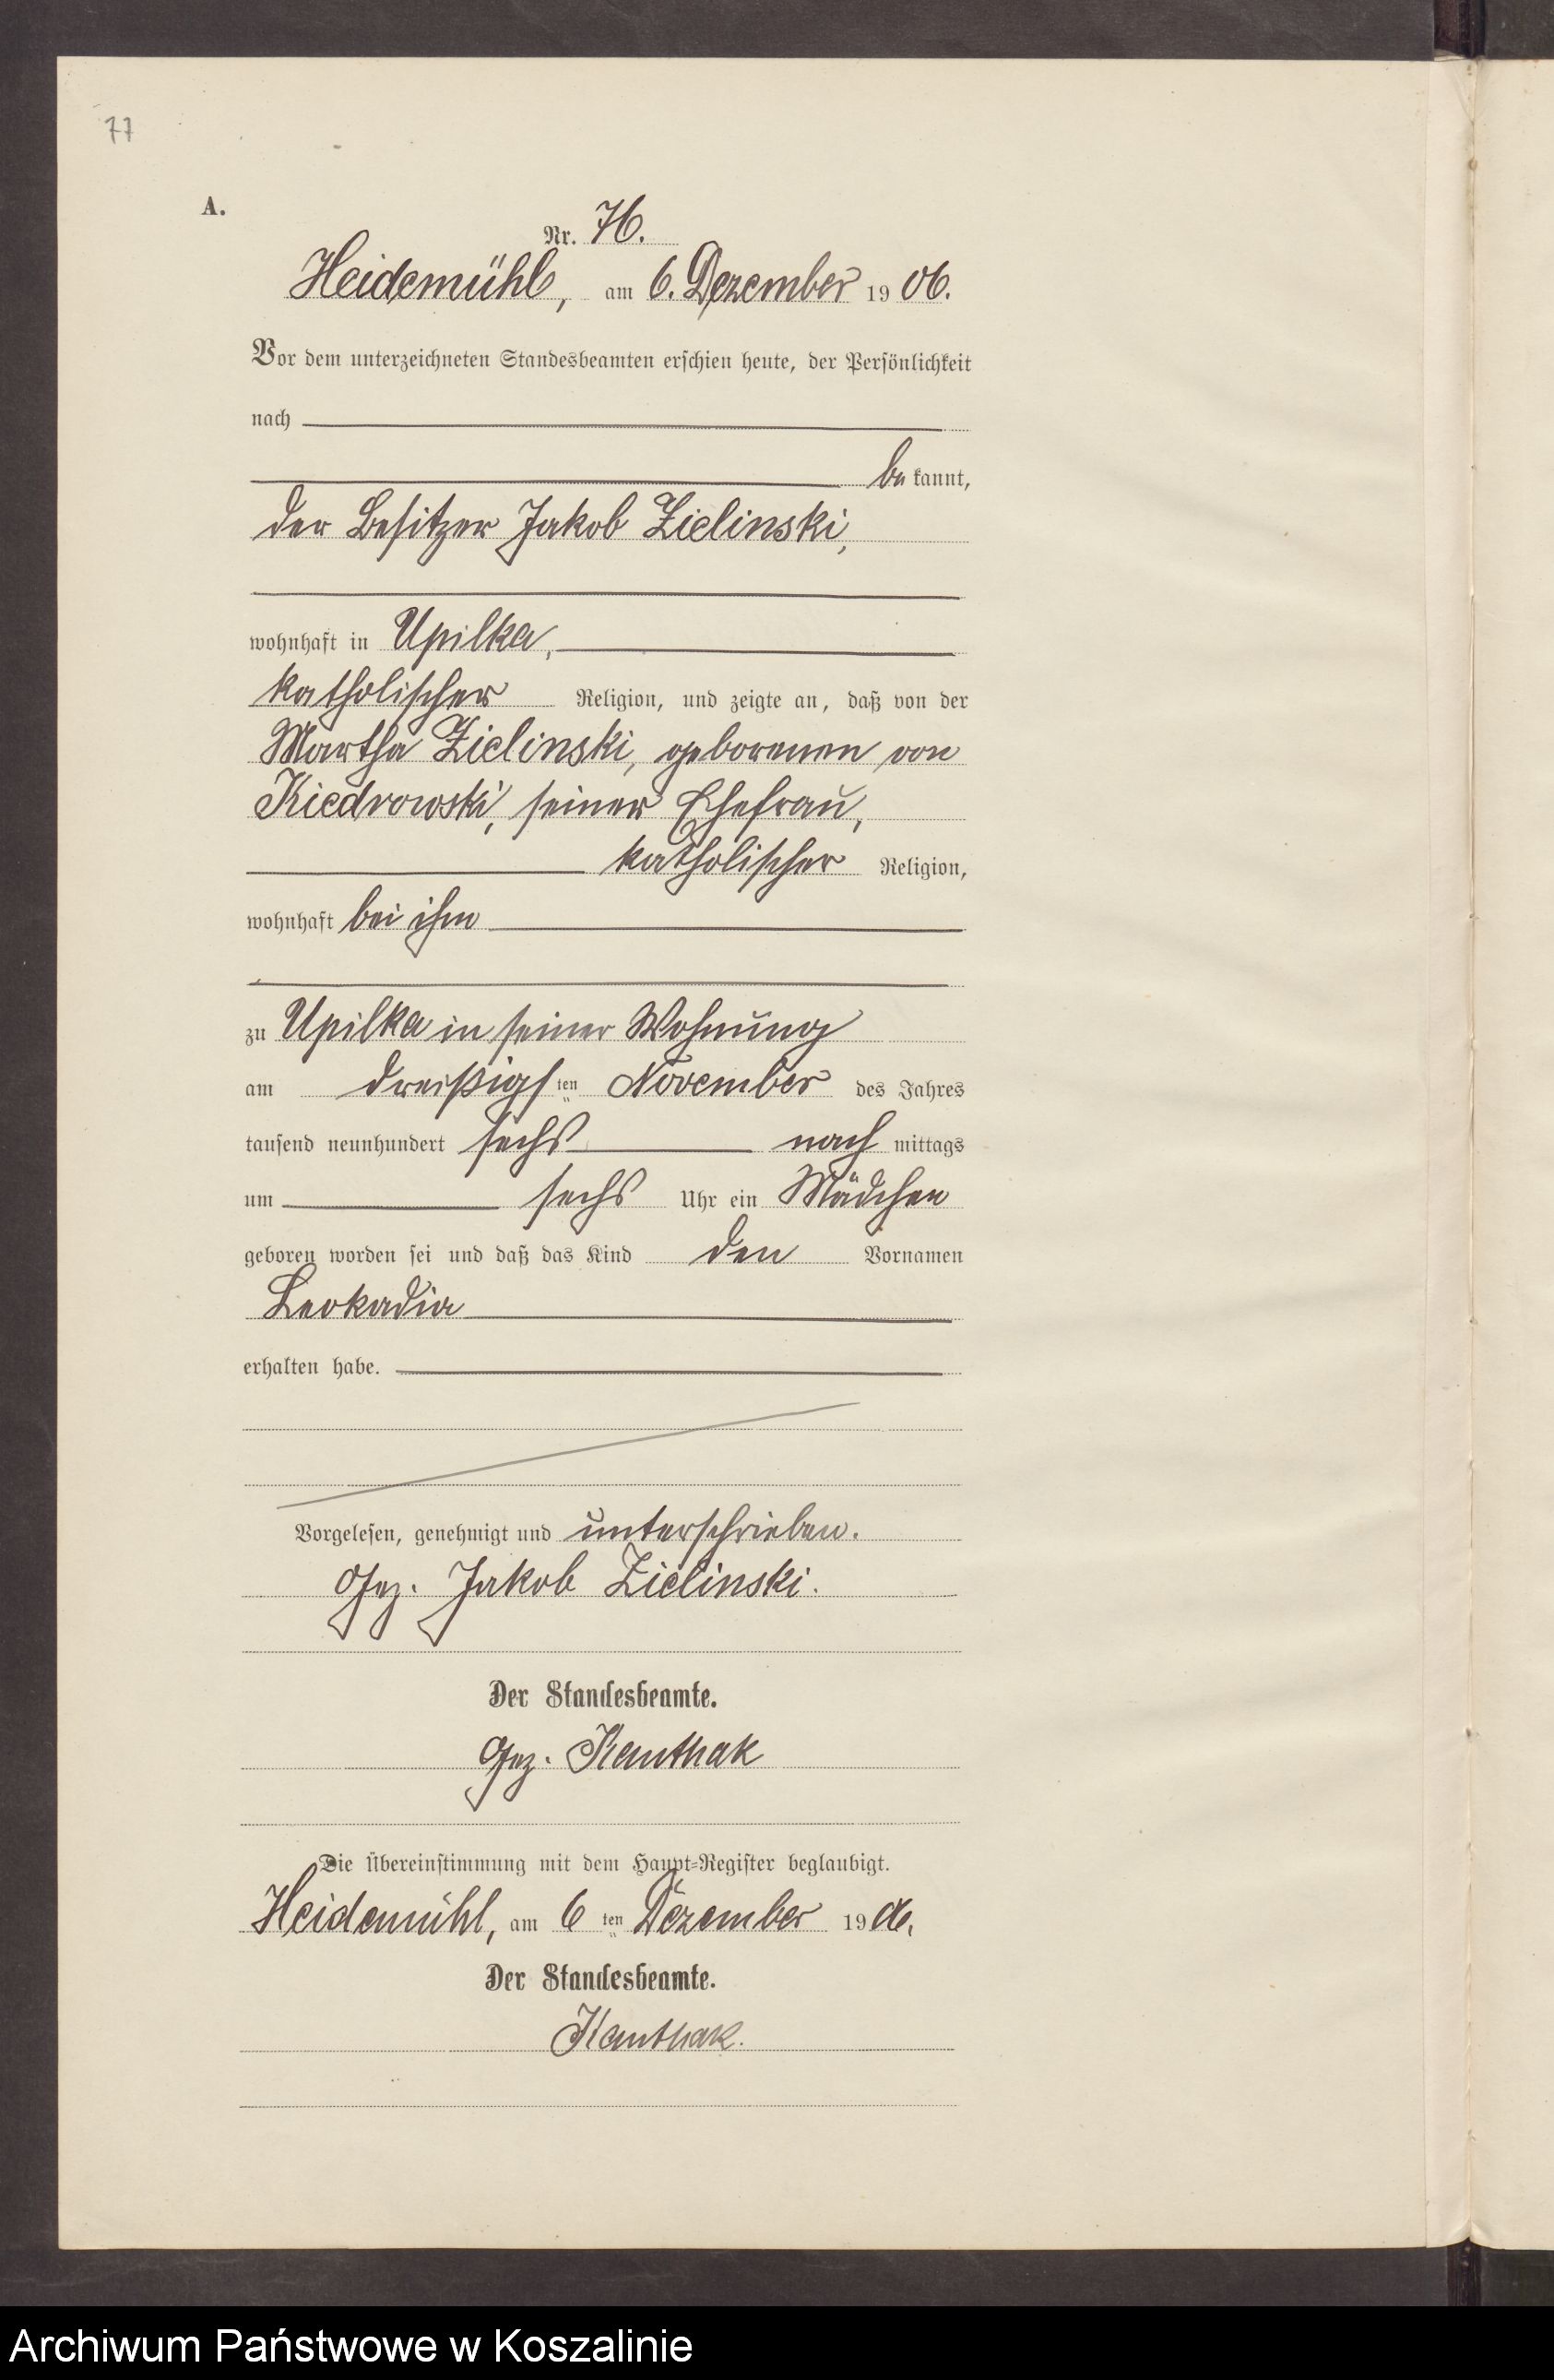 77
A.
Nr. 76.
Heidemühl, am 6. Dezember 1906.
Vor dem unterzeichneten Standesbeamten erschien heute, der Persönlichkeit
nach
be kannt,
der Besitzer Jakob Zielinski,
wohnhaft in Upilka,
katholischer Religion, und zeigte an, daß von der
Martha Zielinski, geborenen von
Kiedrowski, seiner Ehefrau,
katholischer Religion,
wohnhaft bei ihm
zu Upilka in seiner Wohnung
am dreißigsten November des Jahres
tausend neunhundert sechs nach mittags
um sechs Uhr ein Mädchen
geboren worden sei und daß das Kind den Vornamen
Leokadia
erhalten habe.
Vorgelesen, genehmigt und unterschrieben.
Gez. Jakob Zielinski.
Der Standesbeamte.
Gez. Kanthak
Die Übereinstimmung mit dem Haupt-Register beglaubigt.
Heidemühl, am 6 ten Dezember 1906.
Der Standesbeamte.
Kanthak.
Archiwum Państwowe w Koszalinie